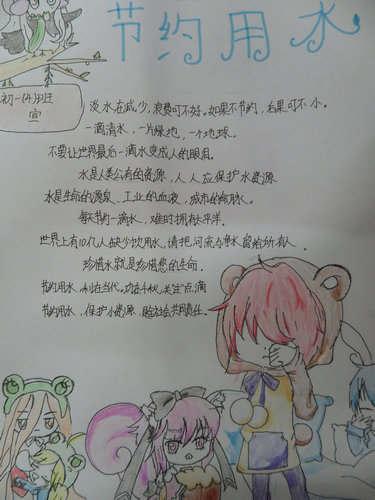 节约用水
初一(4)班
淡水在减少，浪费可不好。如果不节约，后果可不小。
一滴清水，一片绿地，一个地球。
不要让世界最后一滴水变成人的眼泪。
水是人类公有的资源，人人应保护水资源
水是生命的源泉、工业的血液，城市的命脉。
每天节约一滴水，难时拥有太平洋。
世界上有10亿人缺少饮用水，请把河流与净水留给所有人。
珍惜水就是珍惜您的生命.
节约用水，利在当代，功在千秋，关注点滴
节约用水、保护水资源，